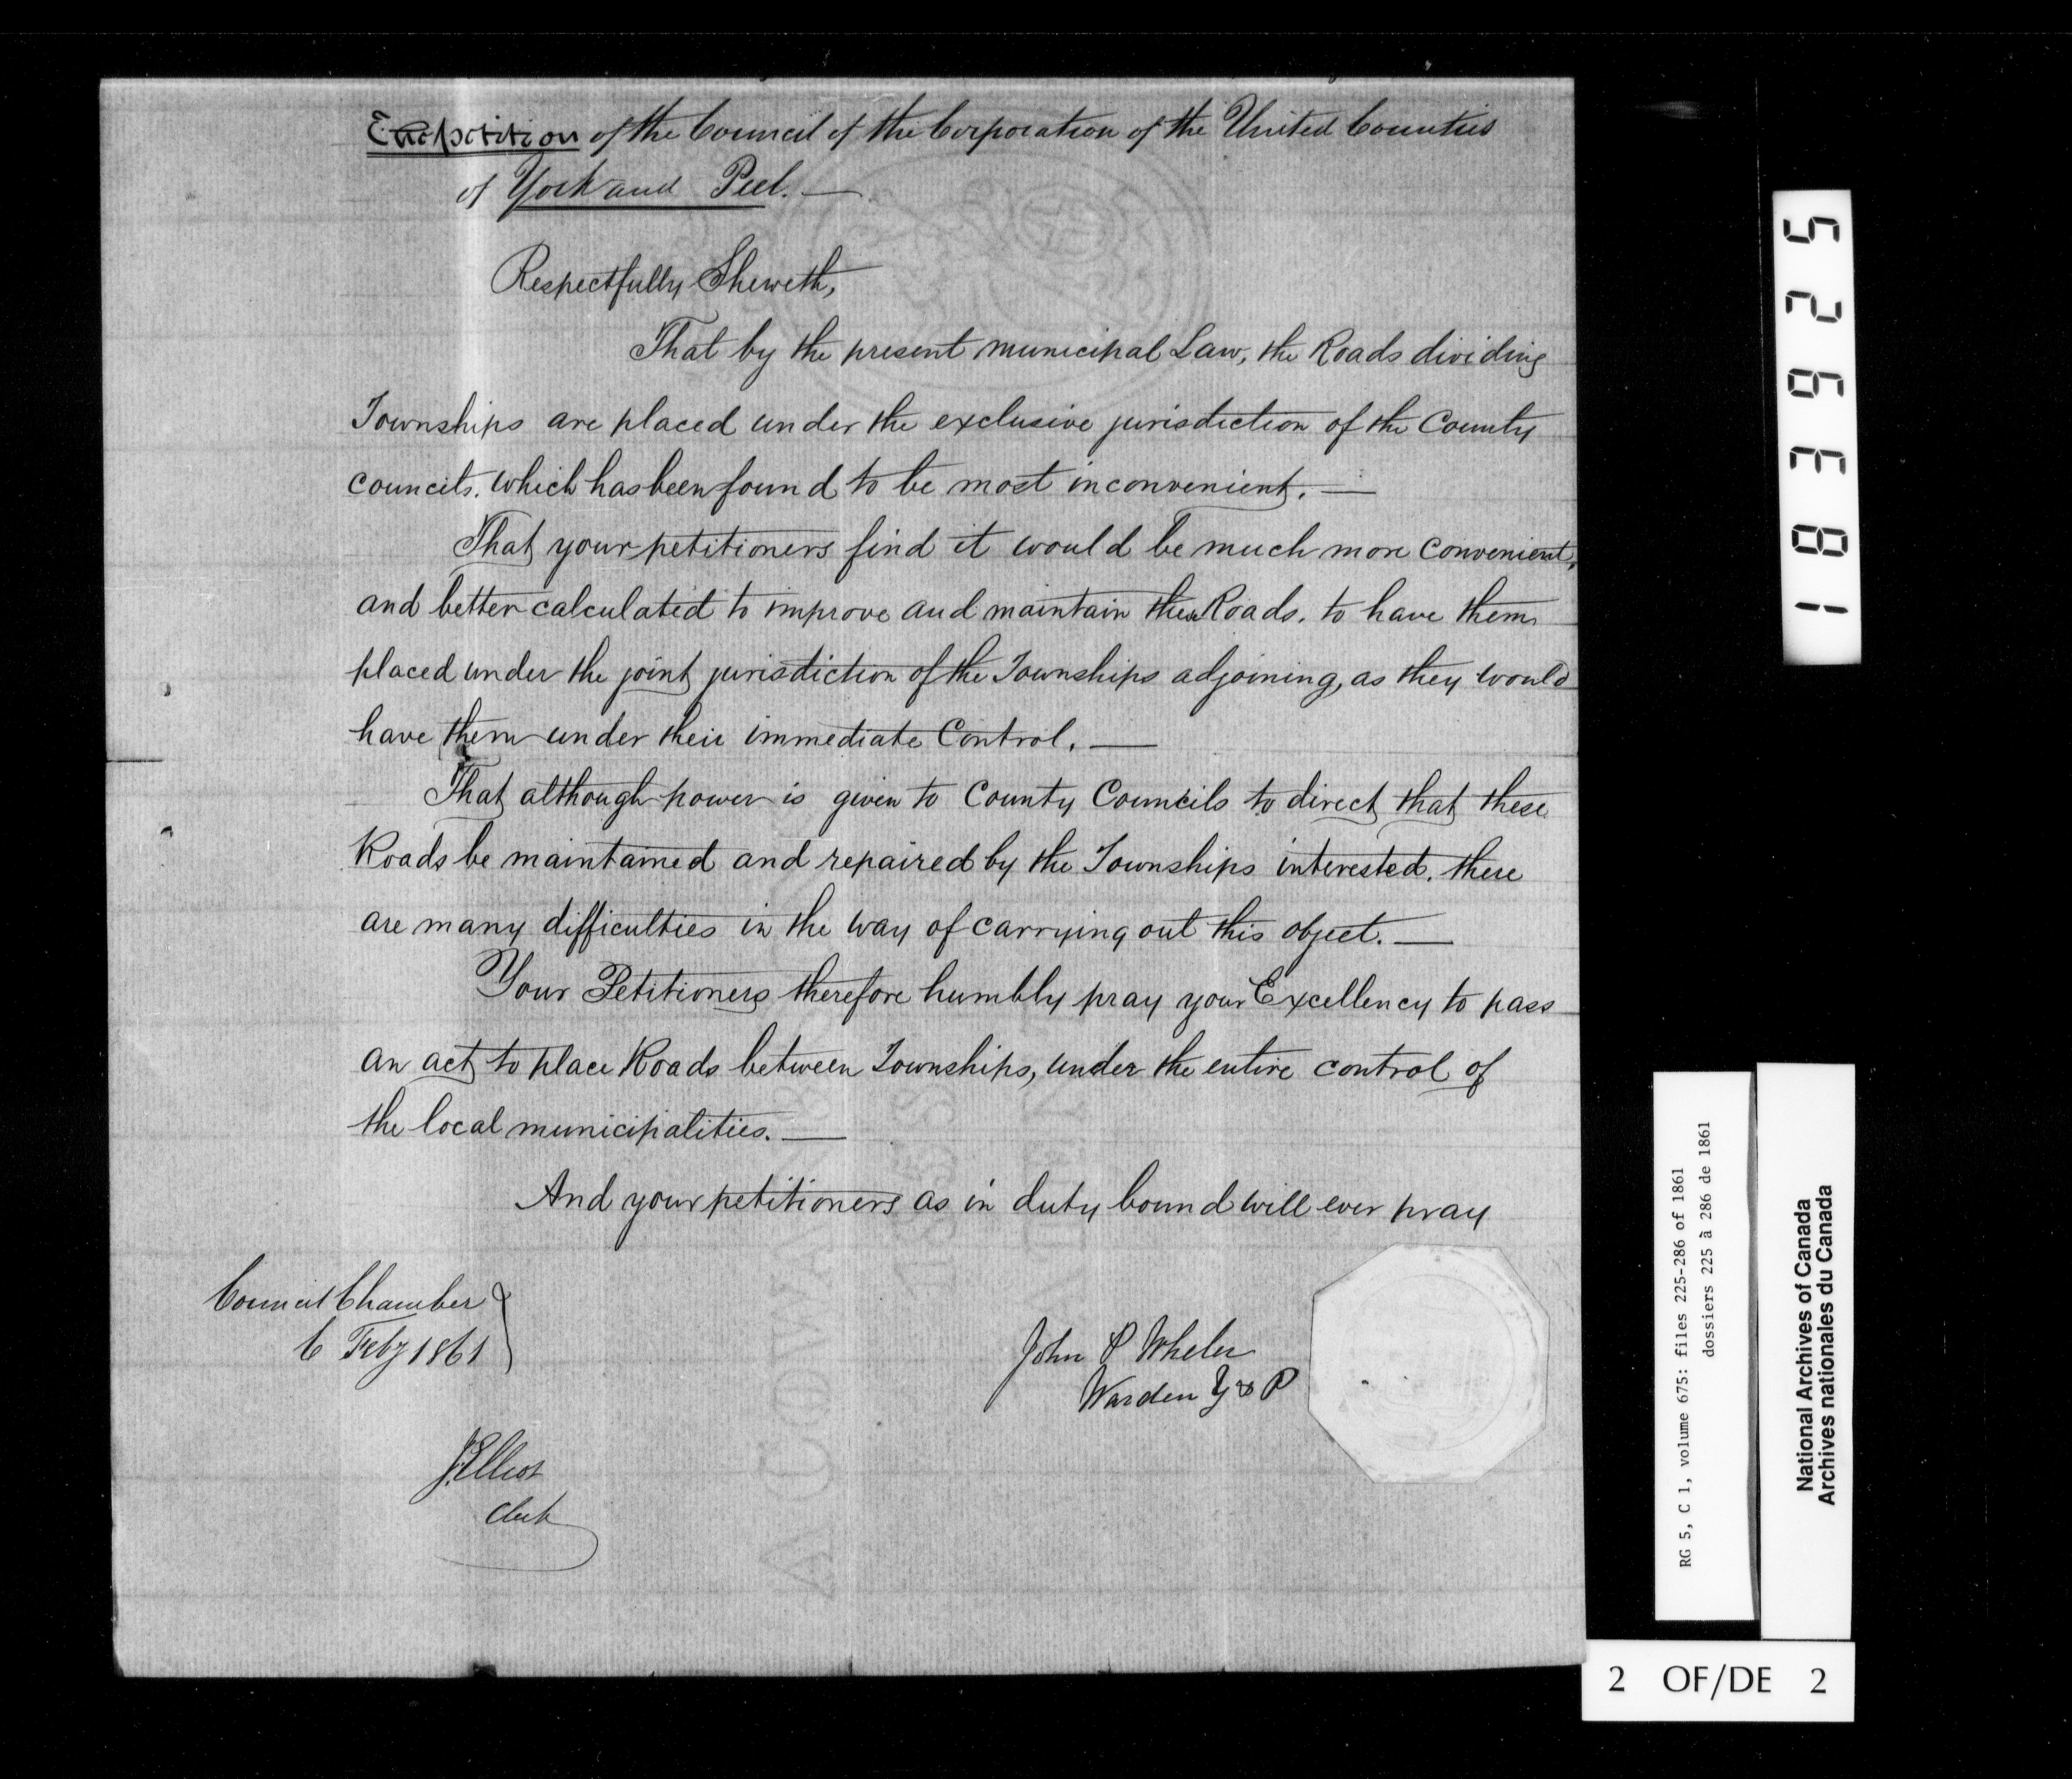 The petition of the Council of the Corporation of the United Counties
of York and Peel. —
Respectfully Sheweth,
That by the present municipal Law, the Roads dividing
Townships are placed under the exclusive jurisdiction of the County
councils. which has been found to be most inconvenient. —
That your petitioners find it would be much more convenient,
and better calculated to improve and maintain these Roads. to have them
placed under the joint jurisdiction of the Townships adjoining, as they would
have them under their immediate Control. —
That although power is given to County Councils to direct that these
Roads be maintained and repaired by the Townships interested. there
are many difficulties in the way of carrying out this object. —
Your Petitioners therefore humbly pray your Excellency to pass
an act to place Roads between Townships, under the entire control of
the local municipalities. —
And your petitioners as in duty bound will ever pray
Council Chamber
6 Feby 1861
John P Wheler
Warden Y & P
J. Elliot
Clerk
183925
RG 5, C 1, volume 675: files 225-286 of 1861
dossiers 225 à 286 de 1861
National Archives of Canada
Archives nationales du Canada
2 OF/DE 2